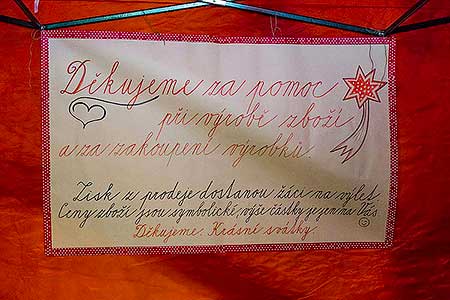 Děkujeme za pomoc
při výrobě zboží
a za zakoupení výrobků.
Zisk z prodeje dostanou žáci na výlet.
Ceny zboží jsou symbolické, výše částky je jen na Vás
Děkujeme. Krásné svátky.